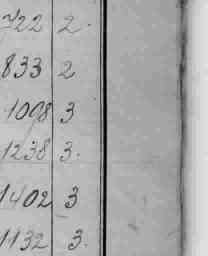 722 2.
833 2
1098 3
1238 3.
1402 3
1132 3.